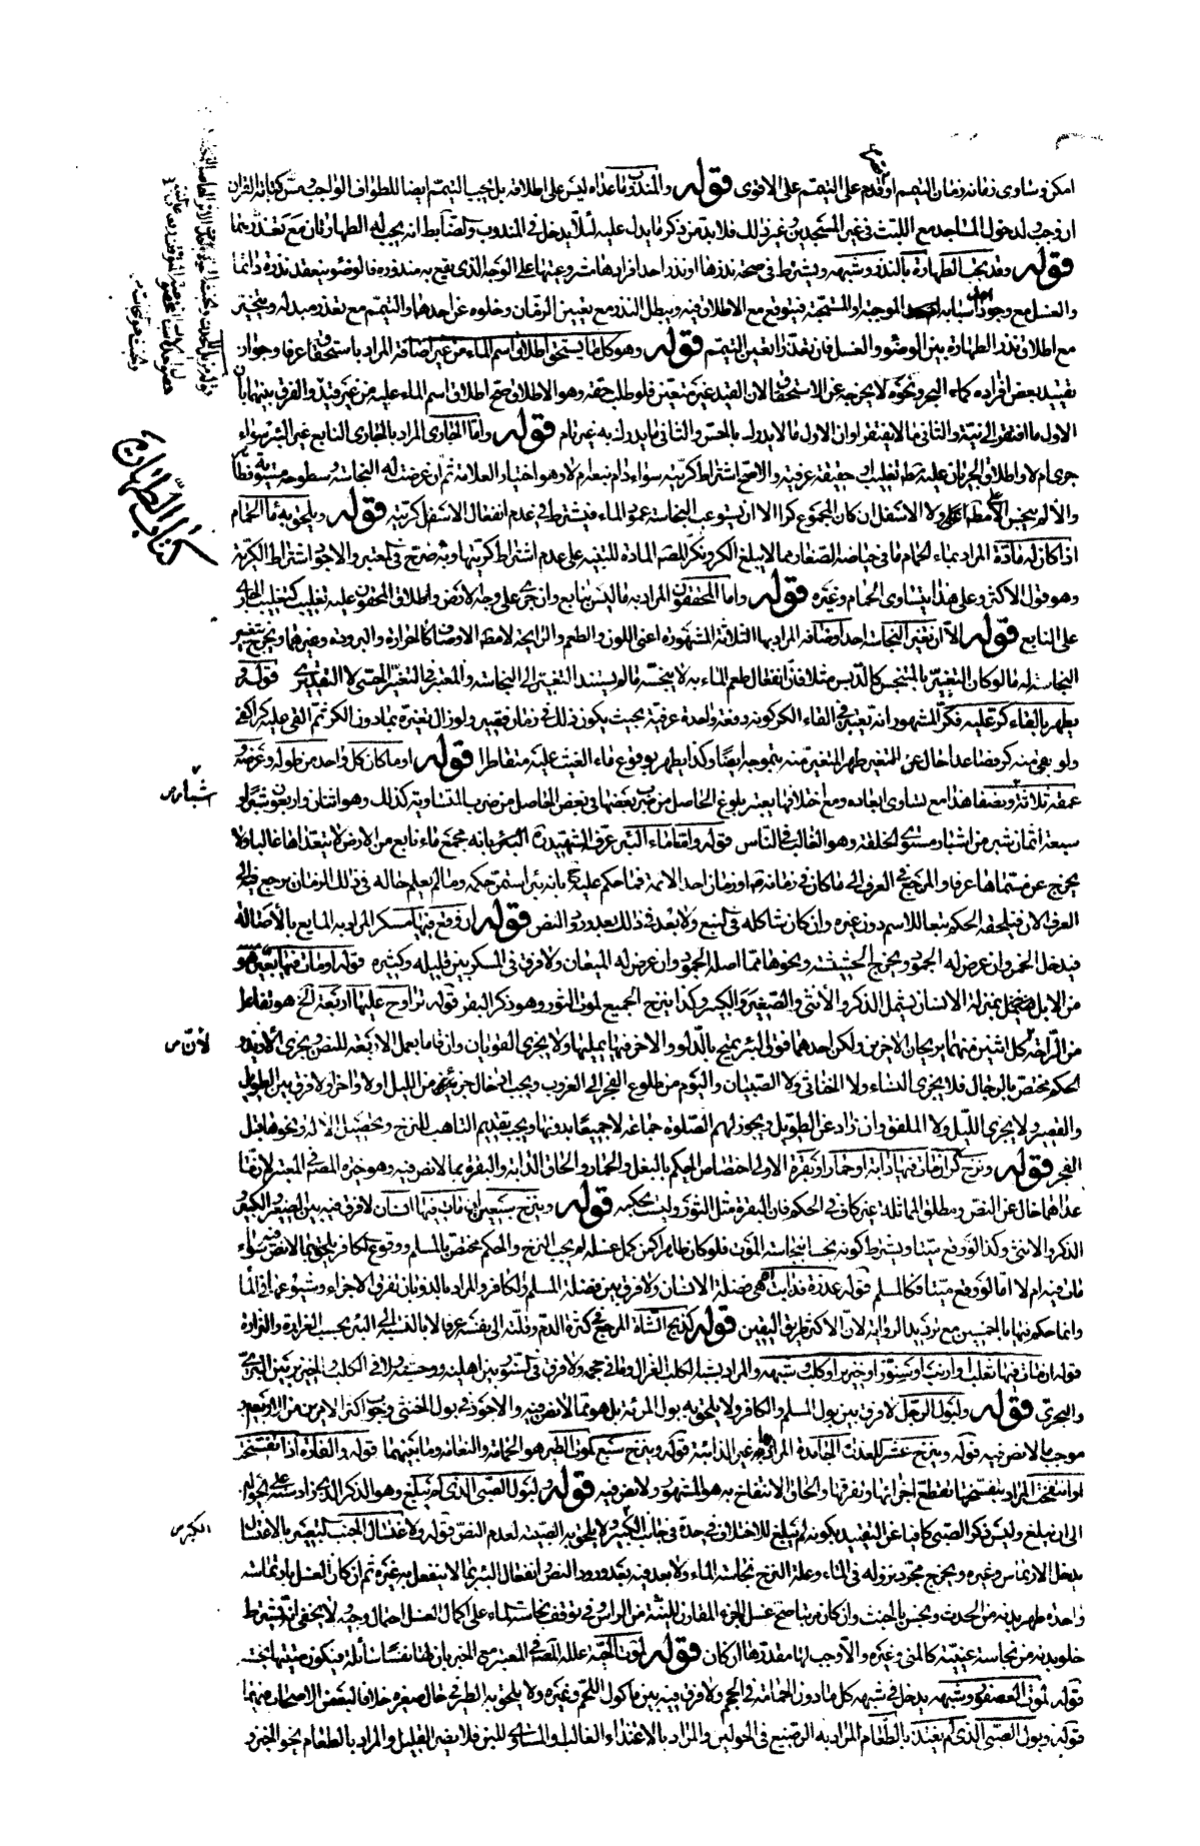 امكن وتساوى زمانه زمان التيمم او قدم على التيمم على الاقوى قوله والمندوب ماعداه ليس على اطلاقه بل يجب التيمم ايضا للطواف الواجب ومس كتابة القران
ان وجب ولدخول المساجد مع اللبث في غير المسجدين وغير ذلك فلا بد من ذكر ما يدل عليه لئلا يدخل في المندوب والضابط انه يجب لما يجب له الطهارتان مع تعذرهما
قوله وقد تجب الطهارة بالنذر وشبهه ويشترط في صحة نذرها او نذر احد افرادها مشروعيتها على الوجه الذى يقع به منذوره فالوضوء ينعقد نذره دائما
والغسل مع وجود احد اسبابه الموجبة او المستحبة فيتوقع مع الاطلاق فيه ويبطل النذر مع تعيين الزمان وخلوه عن احدهما والتيمم مع تعذر مبدله ويتخير
مع اطلاق نذر الطهارة بين الوضوء والغسل فان تعذرا تعين التيمم قوله وهو كل ما يستحق اطلاق اسم الماء من غير اضافة المراد باستحقاق عرفا وجواز
تقييد بعض افراده كماء البحر ونحوه لا يخرجه عن الاستحقاق لان القيد غير متعين فلو طلب حقه وهو الاطلاق صح اطلاق اسم الماء عليه من غير قيد والفرق بينهما بان
الاول ما افتقر الى نية والثانى ما لا يفتقر او ان الاول ما لا يدرك بالحس والثانى ما يدرك به غير تام قوله واما الجارى المراد بالجارى النابع غير البئر سواء
جرى ام لا واطلاق الجريان عليه تغليب او حقيقة عرفية والاصح اشتراط كريته سواء دام نبعه ام لا وهو اختيار العلامة ثم ان عرضت له النجاسة وسطوحه مستوية
والا لم ينجس الاعلى مطلقا ولا الاسفل ان كان المجموع كرا الا ان يستوعب النجاسة عمود الماء فيشترط في عدم انفعال الاسفل كريته قوله ويلحق به ماء الحمام
اذا كان له مادة المراد بماء الحمام ما في حياضه الصغار مما لا يبلغ الكر ونكر المص المادة للتنبيه على عدم اشتراط كريتها وبه صرح في المعتبر والاجود اشتراط الكرية
وهو قول الاكثر وعلى هذا يتساوى الحمام وغيره قوله واما المحقون المراد به ما ليس بنابع وان جرى على وجه الارض واطلاق المحقون عليه تغليب كتغليب الجارى
على النابع قوله الا ان تغير النجاسة احد اوصافه المراد بها الثلاثة المشهورة اعنى اللون والطعم والرائحة لا مطلق الاوصاف كالحرارة والبرودة وغيرهما ويخرج بتغيير
النجاسة له ما لو كان التغير بالمتنجس كالدبس مثلا فان انفعال طعم الماء به لا ينجسه ما لم يستند التغير الى النجاسة والمعتبر في التغير الحسى لا التقديرى قوله و
يطهر بالقاء كر عليه فكر المشهور انه يعتبر في القاء الكر كونه دفعة واحدة عرفية بحيث يكون ذلك في زمان قصير ولو زال تغيره بما دون الكر ثم القى عليه كر كفى
ولو بقى منه كر فصاعدا خال عن المتغير طهر المتغير منه بتموجه ايضا وكذا يطهر بوقوع ماء الغيث عليه متقاطرا قوله او ما كان كل واحد من طوله وعرضه و
عمقه ثلاثة ونصفا هذا مع تساوى ابعاده ومع اختلافها يعتبر بلوغ الحاصل من ضرب بعضها في بعض الحاصل من ضرب المتساوية كذلك وهو اثنان واربعون شبرا و
سبعة اثمان شبر من اشبار مستوى الخلقة وهو الغالب في الناس قوله واما ماء البئر عرف الشهيد البئر بانه مجمع ماء نابع من الارض لا يتعداها غالبا ولا
يخرج عن مسماها عرفا والمرجع في العرف الى ما كان في زمانه او زمان احد الائمة فما حكم عليه بانه بئر استمر حكمه وما لم يعلم حاله في ذلك الزمان يرجع فيه الى
العرف الان فيلحقه الحكم تبعا للاسم دون غيره وان كان شاكله في النبع ولا بعد في ذلك بعد ورود النص قوله ان وقع فيها مسكر المراد به المائع بالاصالة
فيدخل الخمر وان عرض له الجمود ويخرج الحشيشة ونحوها مما اصله الجمود وان عرض له الميعان ولا فرق في المسكر بين قليله وكثيره قوله او مات فيها بعير هو
من الابل بمنزلة الانسان يشمل الذكر والانثى والصغير والكبير وكذا ينزح الجميع لموت الثور وهو ذكر البقر قوله تراوح عليها اربعة الخ هو تفاعل
من الراحة لان كل اثنين منهما يريحان الاخرين ولكن احدهما فوق البئر يمتح بالدلو والاخر فيها يمليها ولا يجزى الفوتان وان قاما بعمل الاربعة للنص ويجزى الازيد و
الحكم مختص بالرجال فلا يجزى النساء ولا الخناثى ولا الصبيان واليوم من طلوع الفجر الى الغروب ويجب ادخال جزء من الليل اولا واخرا ولا فرق بين الطويل
والقصير ولا يجزى الليل ولا الملفق وان زاد عن الطويل ويجوز لهم الصلوة جماعة لا جميعا بدونها ويجب تقديم التاهب للنزح وتحصيل الالة ونحوها قبل
الفجر قوله ونزح كر ان مات فيها دابة او حمار او بقرة الاولى اختصاص الحكم بالبغل والحمار والحاق الدابة والبقرة بما لا نص فيه وهو خيرة المص في المعتبر لان ما
عداهما خال عن النص ومطلق المماثلة غير كاف في الحكم فان البقرة مثل الثور وليست بحكمه قوله وينزح سبعين ان مات فيها انسان لا فرق فيه بين الصغير والكبير و
الذكر والانثى وكذا لو وقع ميتا ويشترط كونه نجسا بنجاسة الموت فلو كان طاهرا كمن كمل غسله لم يجب النزح والحكم مختص بالمسلم ووقوع الكافر يلحق بما لا نص فيه سواء
مات فيه ام لا اما لو وقع ميتا فكالمسلم قوله عذرة فذابت هي فضلة الانسان ولا فرق بين فضلة المسلم والكافر والمراد بالذوبان تفرق الاجزاء وشيوعها في الماء
وانما حكم فيها بالخمسين مع ترديد الرواية لان الاكثر طريق اليقين قوله كذبح الشاة المرجع في كثرة الدم وقلته الى نفسه عرفا لا بالنسبة الى البئر بحسب الغزارة والنزارة
قوله ان مات فيها ثعلب او ارنب او سنور او خنزير او كلب وشبهه والمراد بشبه الكلب الغزال وما في حجمه ولا فرق في السنور بين اهليه ووحشيه ولا في الكلب والخنزير بين البرى
والبحرى قوله ولبول الرجل لا فرق بين بول المسلم والكافر ولا يلحق به بول المرئة بل هو مما لا نص فيه والاجود في بول الخنثى وجوب اكثر الامرين من الاربعين و
موجب ما لا نص فيه قوله وينزح عشر للعذرة الجامدة المراد بها غير الذائبة قوله وينزح سبع لموت الطير هو الحمامة والنعامة وما بينهما قوله والفارة اذا تفسخت
او انتفخت المراد بتفسخها تقطع اجزائها وتفرقها والحاق الانتفاخ به هو المشهور ولا نص فيه قوله ولبول الصبى الذى لم يبلغ وهو الذكر الذى زاد سنه على الحولين
الى ان يبلغ وليس ذكر الصبى كافيا عن التقييد بكونه لم يبلغ للاختلاف في حده في جانب الكبر ولا يلحق به الصبية لعدم النص قوله ولاغتسال الجنب التعبير بالاغتسال
يدخل الارتماس وغيره ويخرج مجرد نزوله في الماء وعلة النزح نجاسة الماء ولا بعد فيه بعد ورود النص وانفعال البئر بما لا ينفعل به غيره ثم ان كان الغسل بارتماسة
واحدة طهر بدنه من الحدث ونجس بالخبث وان كان مرتبا صح غسل الجزء المقارن للنية من الراس وفى توقف نجاسة الماء على اكمال الغسل احتمال وجيه ولا يخفى انه يشترط
خلو بدنه من نجاسة عينية كالمنى وغيره والا وجب لها مقدرها ان كان قوله لموت الحية علله المص في المعتبر بان لها نفسا سائلة فيكون ميتتها نجسة
قوله لموت العصفور وشبهه يدخل في شبهه كل ما دون الحمامة في الحجم ولا فرق فيه بين ماكول اللحم وغيره ولا يلحق به الطير في حال صغره خلافا لبعض الاصحاب فيهما
قوله وبول الصبى الذى لم يغتذ بالطعام المراد به الرضيع في الحولين والمراد بالاغتذاء الغالب او المساوى للبن فلا يضر القليل والمراد بالطعام نحو الخبز و
كتاب الطهارة
اشبار ص
لأن ص
الكبر ص